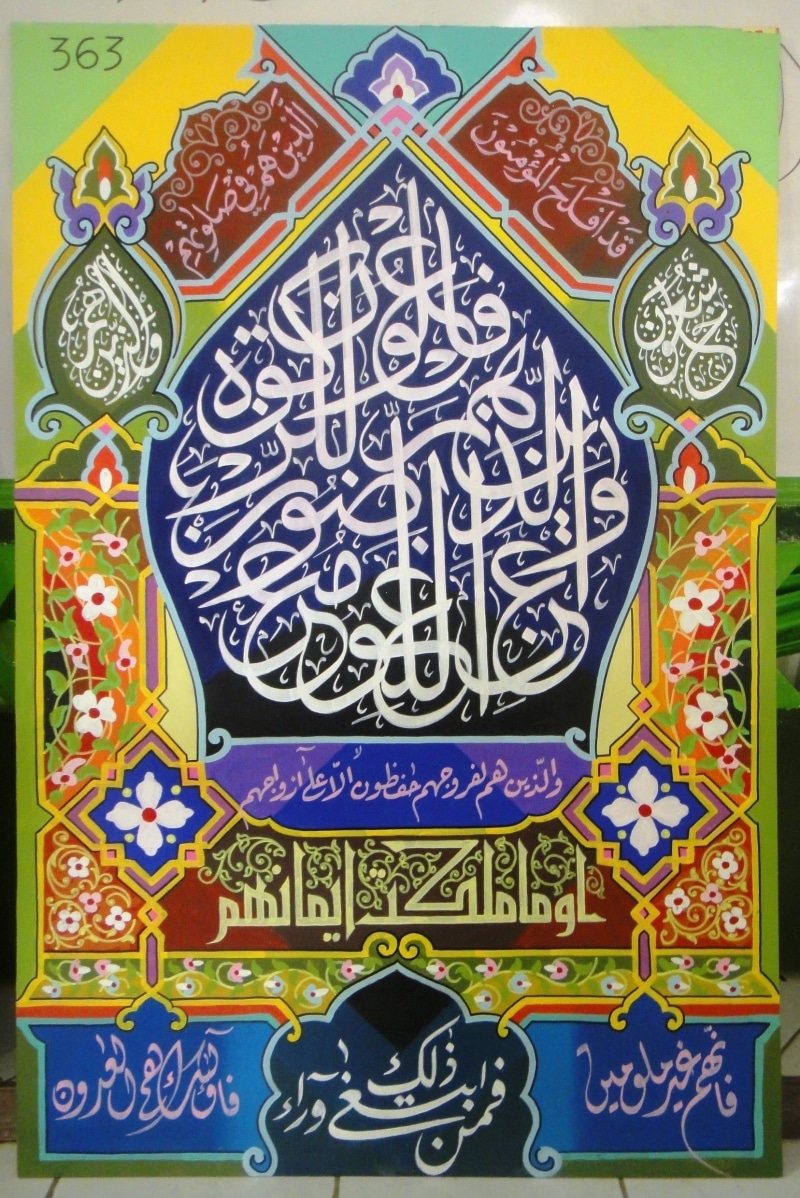 363
قَدْ اَفْلَحَ الْمُؤْمِنُوْنَ
الَّذِيْنَ هُمْ فِيْ صَلَوتِهِمْ
خَاشِعُوْنَ
وَالَّذِيْنَ هُمْ
عَنِ اللَّغْوِ مُعْرِضُوْنَ
وَالَّذِيْنَ هُمْ لِلزَّكَوةِ فَاعِلُوْنَ
والّذين هم لفروجهم حٰفظون الّا علٰٓى ازواجهم
او ما ملكت ايمانهم
فانّهم غير ملومين
فمن ابتغى ورآء ذٰلك
فاولٰٓئك هم العٰدون